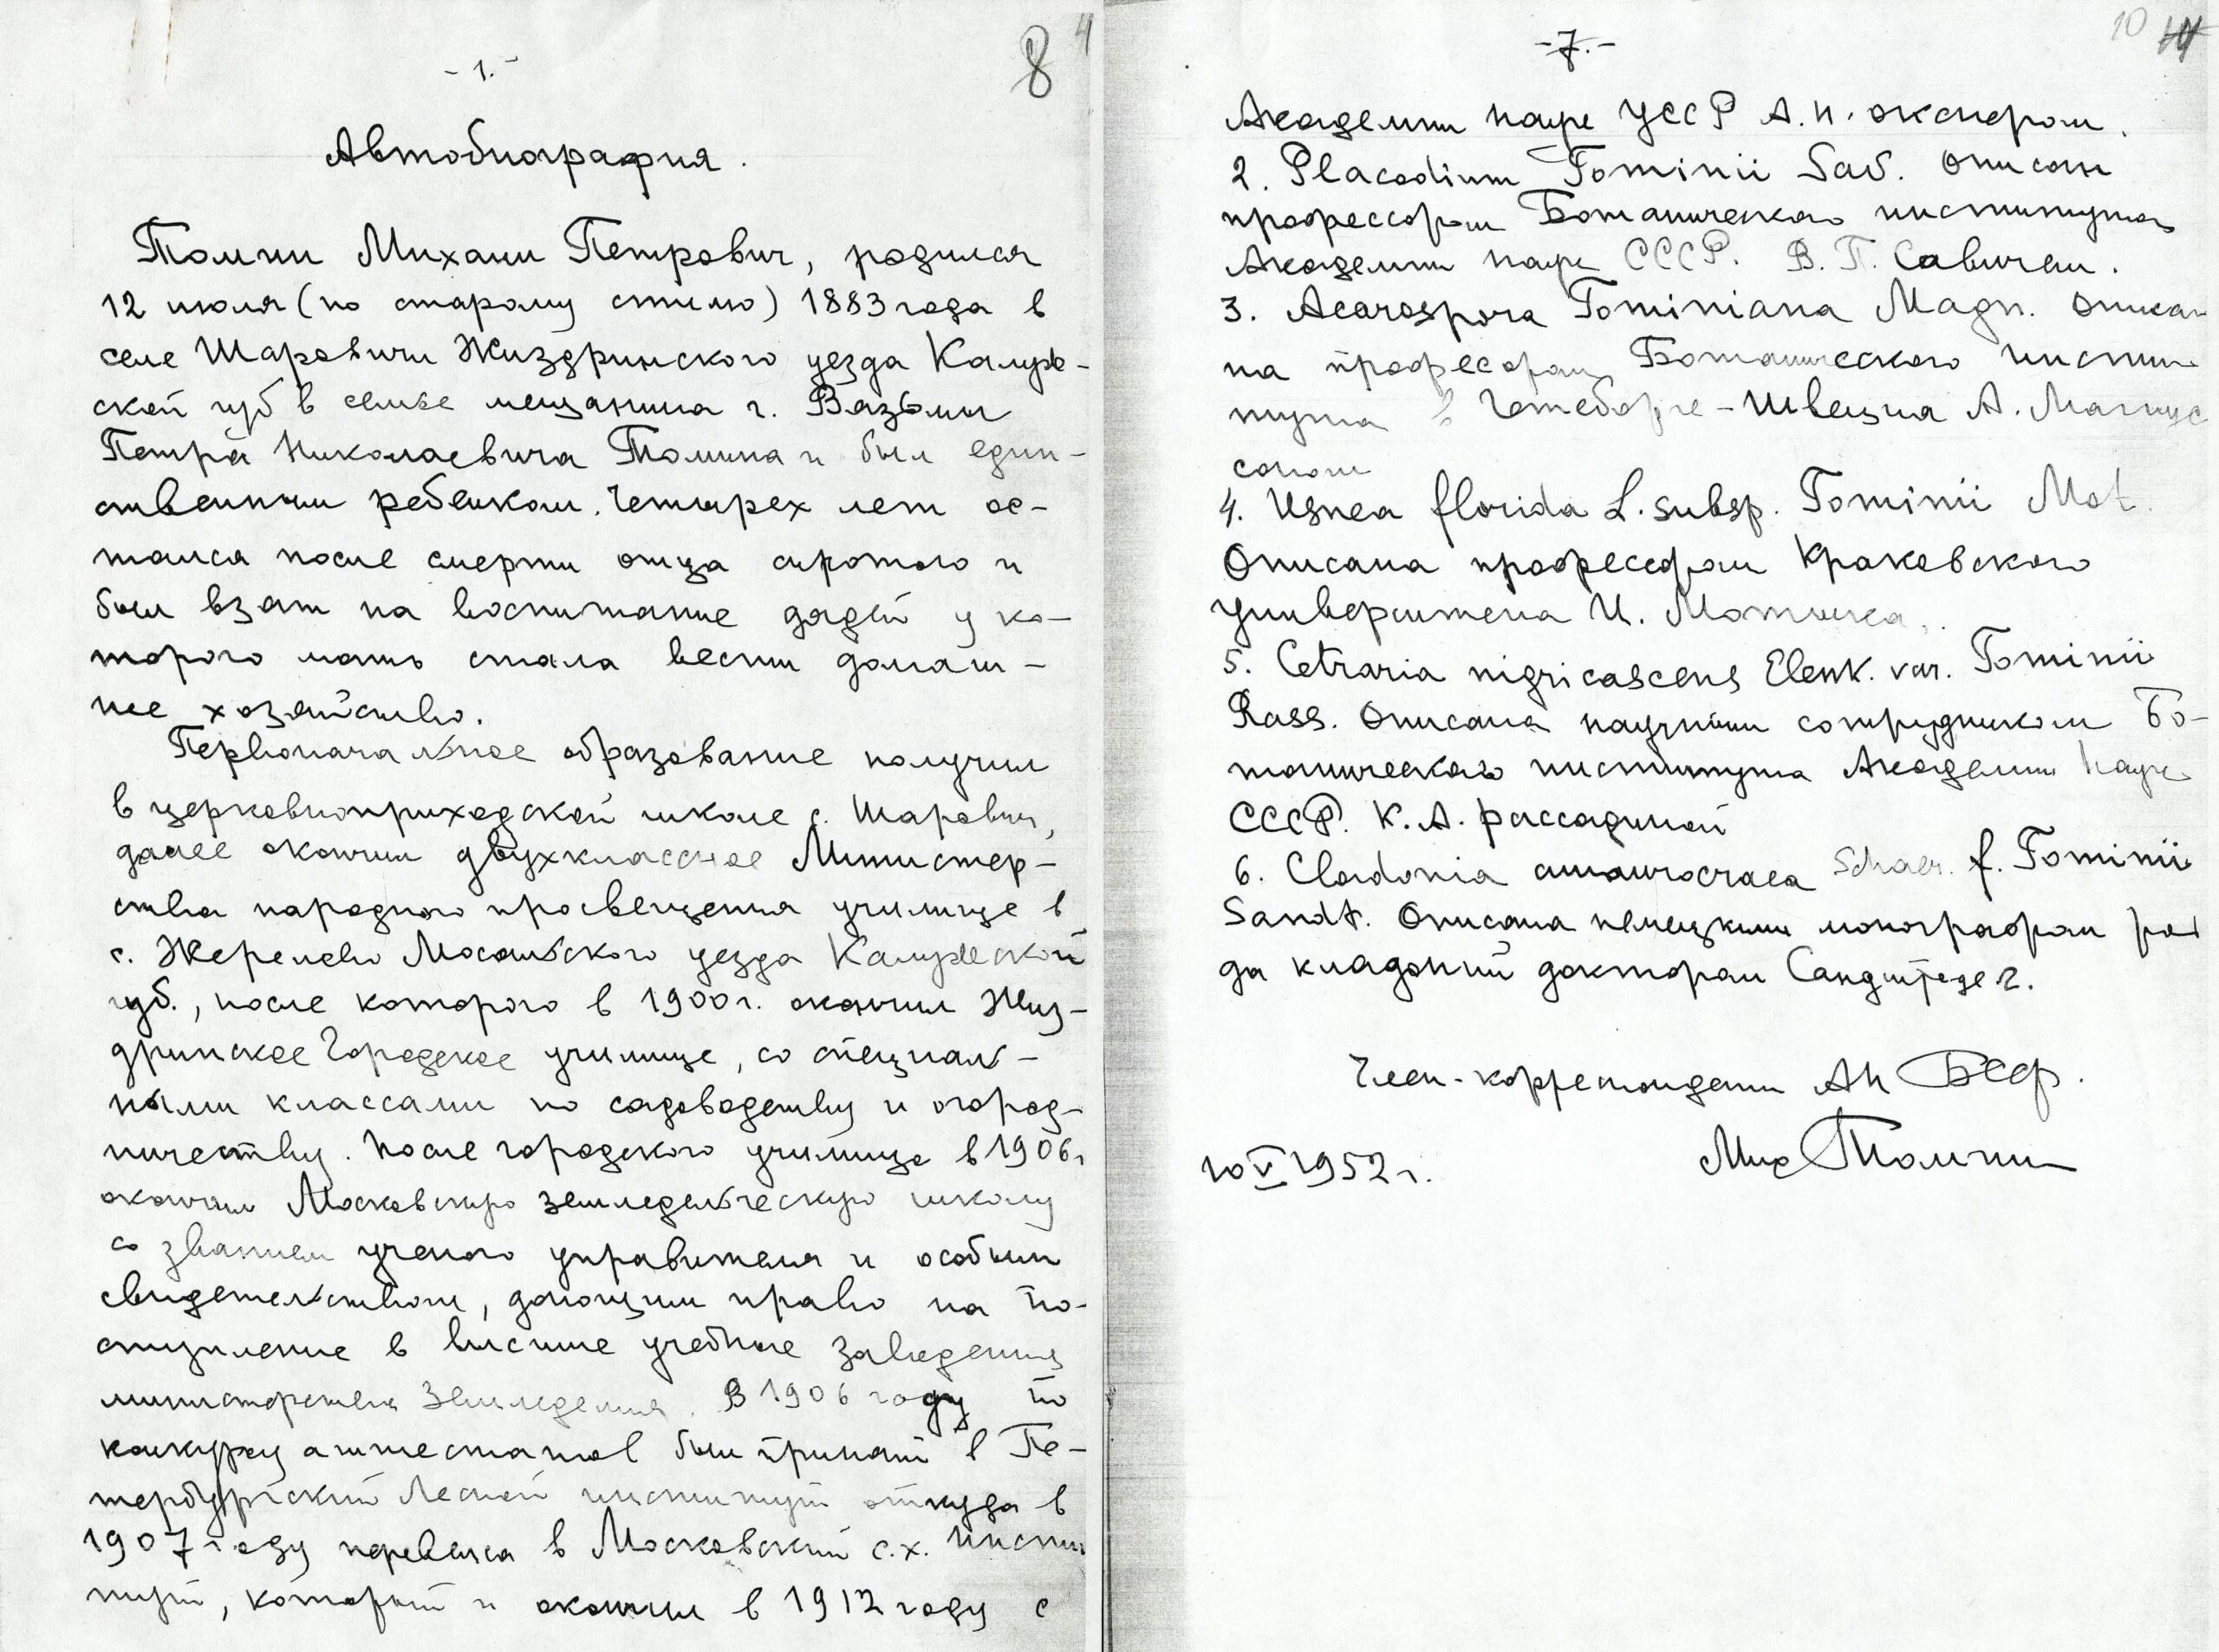 - 1. -
8 4
Автобиография.
Томин Михаил Петрович, родился
12 июля (по старому стилю) 1883 года в
селе Шаровичи Жиздринского уезда Калуж-
ской губ в семье мещанина г. Вязьмы
Петра Николаевича Томина и был един-
ственным ребенком. Четырех лет ос-
тался после смерти отца сиротою и
был взят на воспитание дядей у ко-
торого мать стала вести домаш-
нее хозяйство.
Первоначальное образование получил
в церковноприходской школе с. Шаровичи,
далее окончил двухклассное Министер-
ства народного просвещения училище в
с. Жерелево Мосальского уезда Калужской
губ., после которого в 1900 г. окончил Жиз-
дринское Городское училище, со специаль-
ными классами по садоводству и огород-
ничеству. После городского училища в 1906 г
окончил Московскую земледельческую школу
со званием ученого управителя и особым
свидетельством, дающим право на по-
ступление в высшие учебные заведения
министерства Земледелия. В 1906 году по
конкурсу аттестатов был принят в Пе-
тербургский Лесной институт откуда в
1907 году перевелся в Московский с.х. Инсти
тут, который и окончил в 1912 году с
- 7. -
10
Академии наук УССР А.Н. Окснером.
2. Placodium Tominii Sav. Описан
профессором Ботанического института
Академии наук СССР. В. П. Савичем.
3. Acarospora Tominiana Magn. Описа
на професором Ботанического инсти
тута в Гетеборге - Швеция А. Магнус
соном
4. Usnea florida L. subsp. Tominii Mot.
Описана профессором Краковского
университета И. Мотыка.
5. Cetraria nigricascens Elenk. var. Tominii
Rass. Описана научным сотрудником Бо-
танического института Академии Наук
СССР. К. А. Рассадиной
6. Cladonia amaurocraea Schaer. f. Tominii
Sandt. Описана немецким монографом ро
да кладоний доктором Сандштеде Г.
Член-корреспондент АН БССР.
10 V 1952 г.
Мих Томин